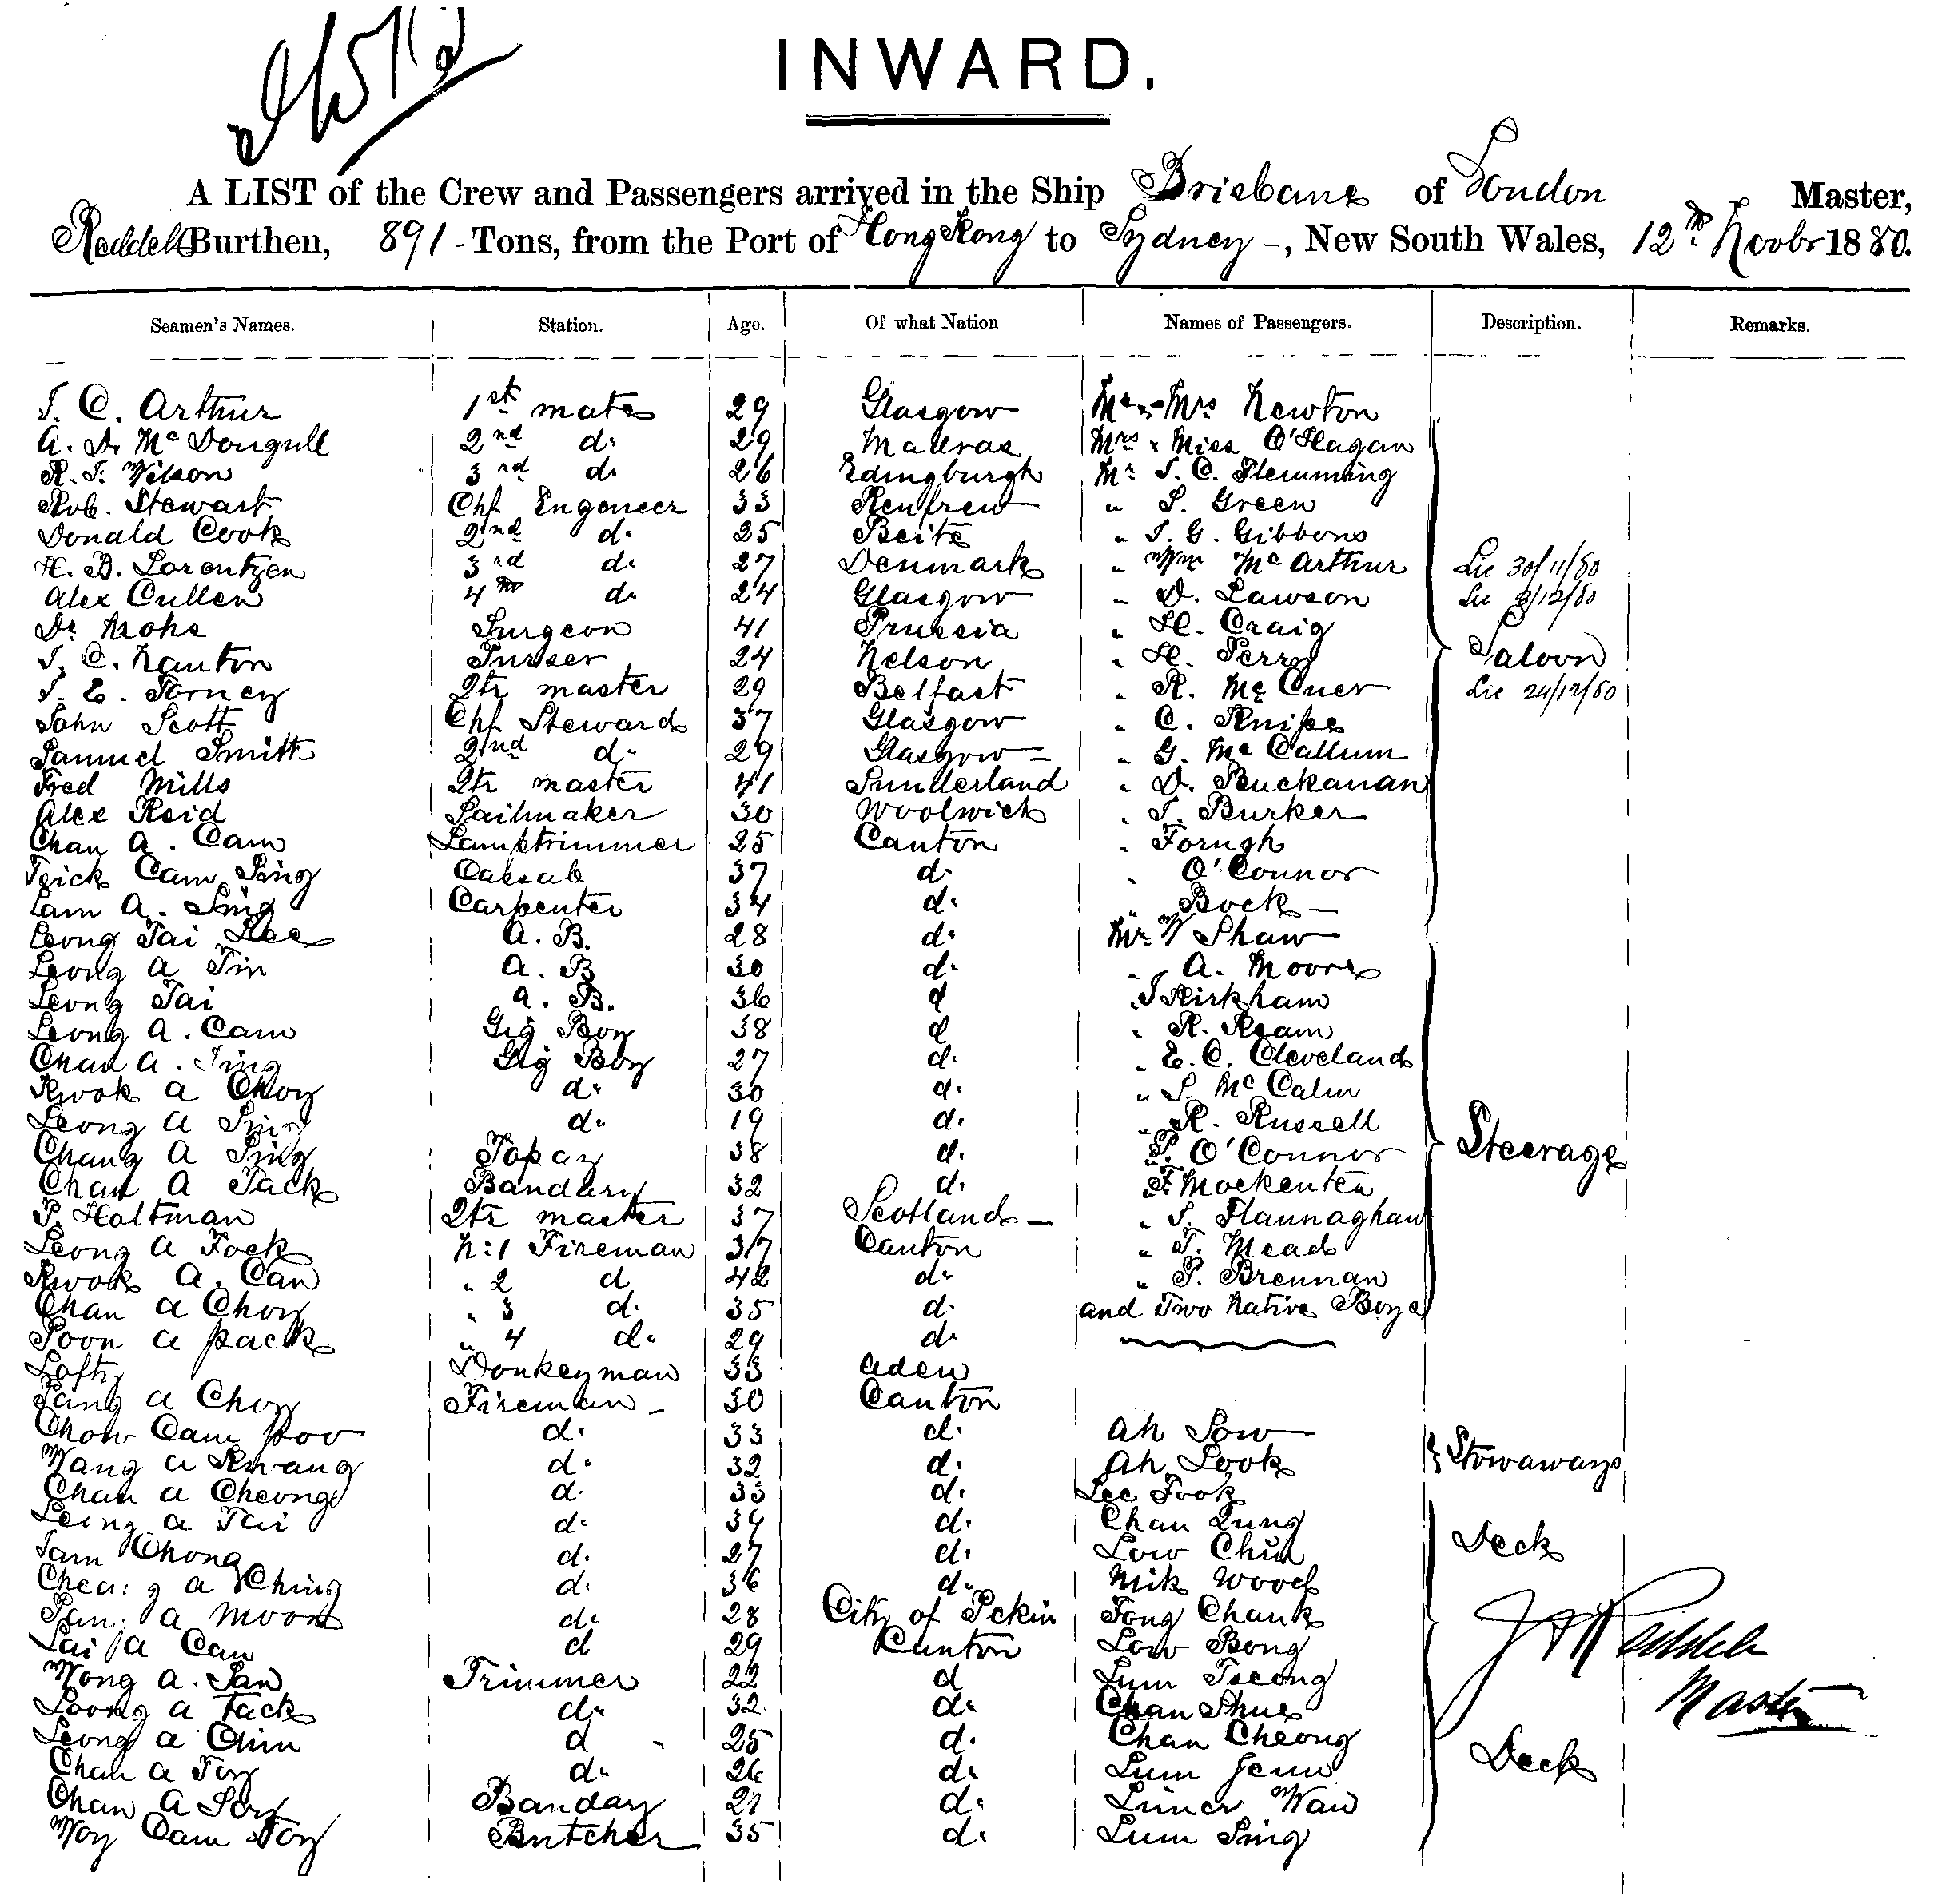 INWARD.
A LIST of the Crew and Passengers arrived in the Ship Brisbane of London Master,
Reddell Burthen, 891 - Tons, from the Port of Hong Kong to Sydney -, New South Wales, 12th Novbr 1880.
Seamen's Names. Station. Age. Of what Nation Names of Passengers. Description. Remarks.
J. C. Arthur 1st mate 29 Glasgow Mr & Mrs Newton
A. D. Mc Dougull 2nd do 29 Madras Mrs & Miss O'Hagan
R. J. Wilson 3rd do 26 Edingburgh Mr J. C. Flemming
Rob. Stewart Chf Engeneer 33 Renfrew " S. Green
Donald Cook 2nd do 25 Beite " J. G. Gibbons
H. B. Lorentzen 3rd do 27 Denmark " Wm Mc Arthur Lic 30/11/80
Alex Cullen 4th do 24 Glasgow " D. Lawson Lic 3/12/80
Dr Mohs Surgeon 41 Prussia " H. Craig
J. C. Nanton Purser 24 Nelson " H. Perry Saloon
J. E. Torney Qtr master 29 Belfast " R. Mc Cuer Lic 24/12/80
John Scott Chf Steward 37 Glasgow " C. Knipe
Samuel Smith 2nd do 29 Glasgow - " G. Mc Callum
Fred Mills Qtr master 41 Sunderland " D. Buckanan
Alex Reid Sailmaker 30 Woolwich " T. Burker
Chan A. Cam Lamptrimmer 25 Canton " Forugh
Teick Cam Sing Cassab 37 do " O'Connor
Lam A. Sing Carpenter 34 do " Bock -
Leong Tai Lee A. B. 28 do Mr W Shaw
Leong A Tin A. B 30 do " A. Moore
Leong Tai A. B. 36 d " J Kirkham
Leong A. Cam Gig Boy 38 d " R. Ream
Chan A. Sing Gig Boy 27 do " E. C. Cleveland
Kwok A Choy do 30 do " S. Mc Calm
Leong A Sing do 19 do " R. Russell
Chang A Sing Topaz 38 do " P. O'Connor Steerage
Chan A Jack Bandary 32 do " F. Mockenten
P. Holtman Qtr master 37 Scotland - " J. Flannaghan
Leong A Fock N:1 Fireman 37 Canton " T. Mead
Kwok A. Can " 2 d 42 do " P. Brennan
Chan A Choy " 3 do 35 do and Two Native Boys
Poon A pack " 4 do 29 do
Lofty Donkeyman 33 Aden
Tang A Choy Fireman - 30 Canton
Chow Cam poo do 33 do Ah Sow
Wang A Kwang do 32 do Ah Look Stowaways
Chan A Cheong do 33 do Lee Fook
Leong A Tai do 34 do Chan Qung
Tam Chong do 27 do Low Chin Deck
A Ching do 36 do Mik Wood
A Moon do 28 City of Pekin Fong Chank
Lai A Can d 29 Canton Low Bong
Wong A. San Trimmer 22 d Lum Tseong
Loong A Tack do 32 do Chan Shue Master
Leong A Chin d 25 do Chan Cheong
Chan A Toy do 26 do Lum Jenn Deck
Chan A Soy Bandary 27 do Limer Wan
Woy Cam Toy Butcher 35 do Lum Sing